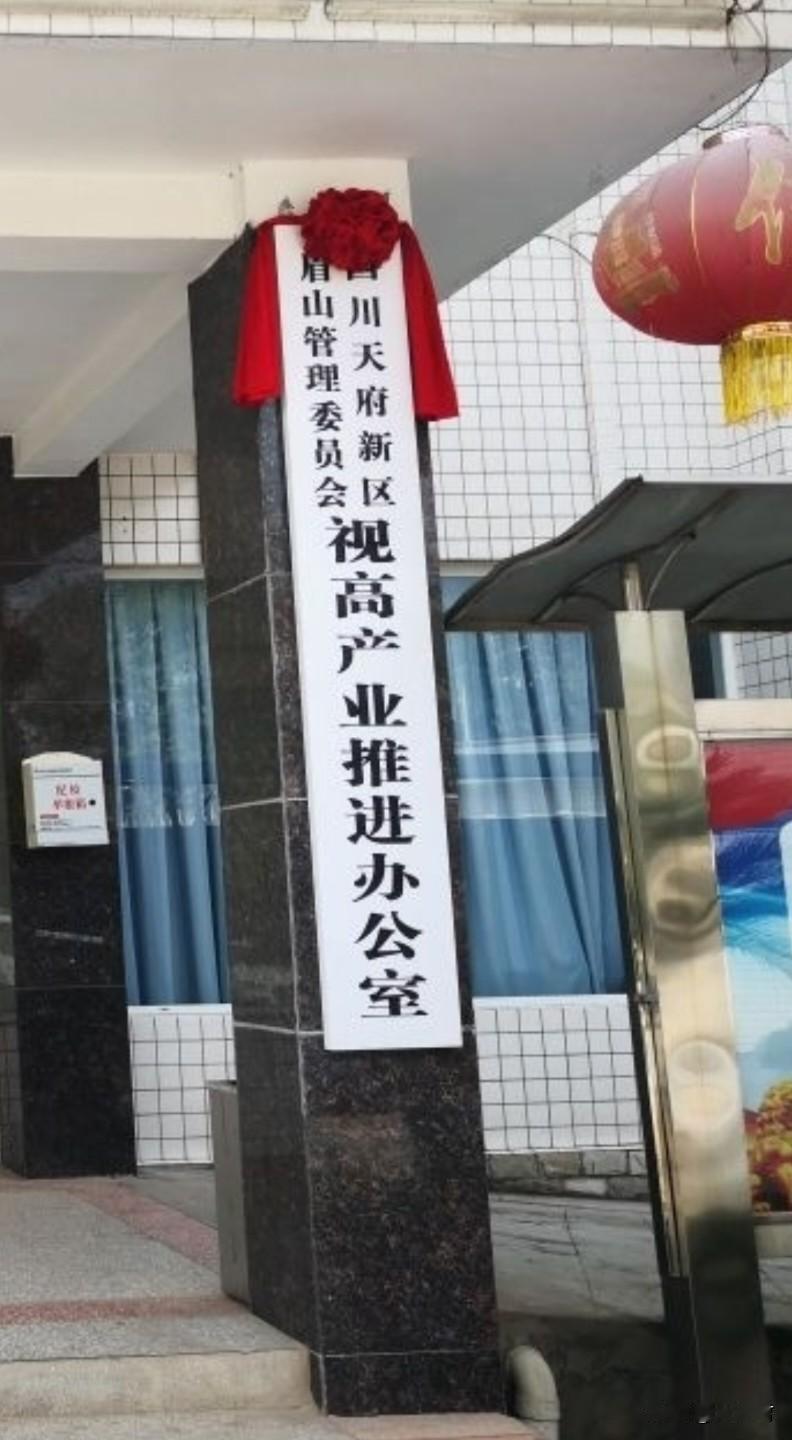 四川天府新区
眉山管理委员会
视高产业推进办公室
纪检
举报箱